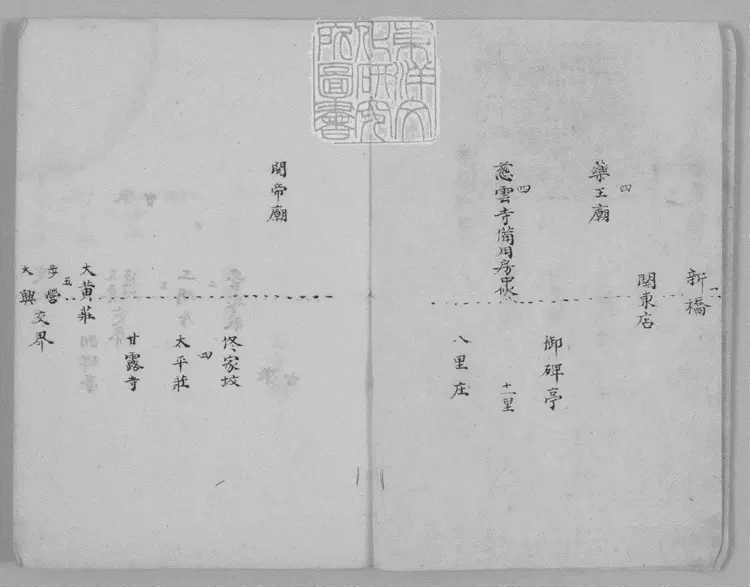 東洋文
化研究
所圖書
一
新橋
関東店
四
藥王廟
御碑亭
四
慈雲寺備用房
十一里
八里庄
関帝廟
佟家坟
四
太平莊
甘露寺
大黄莊
五
步營
大興交界